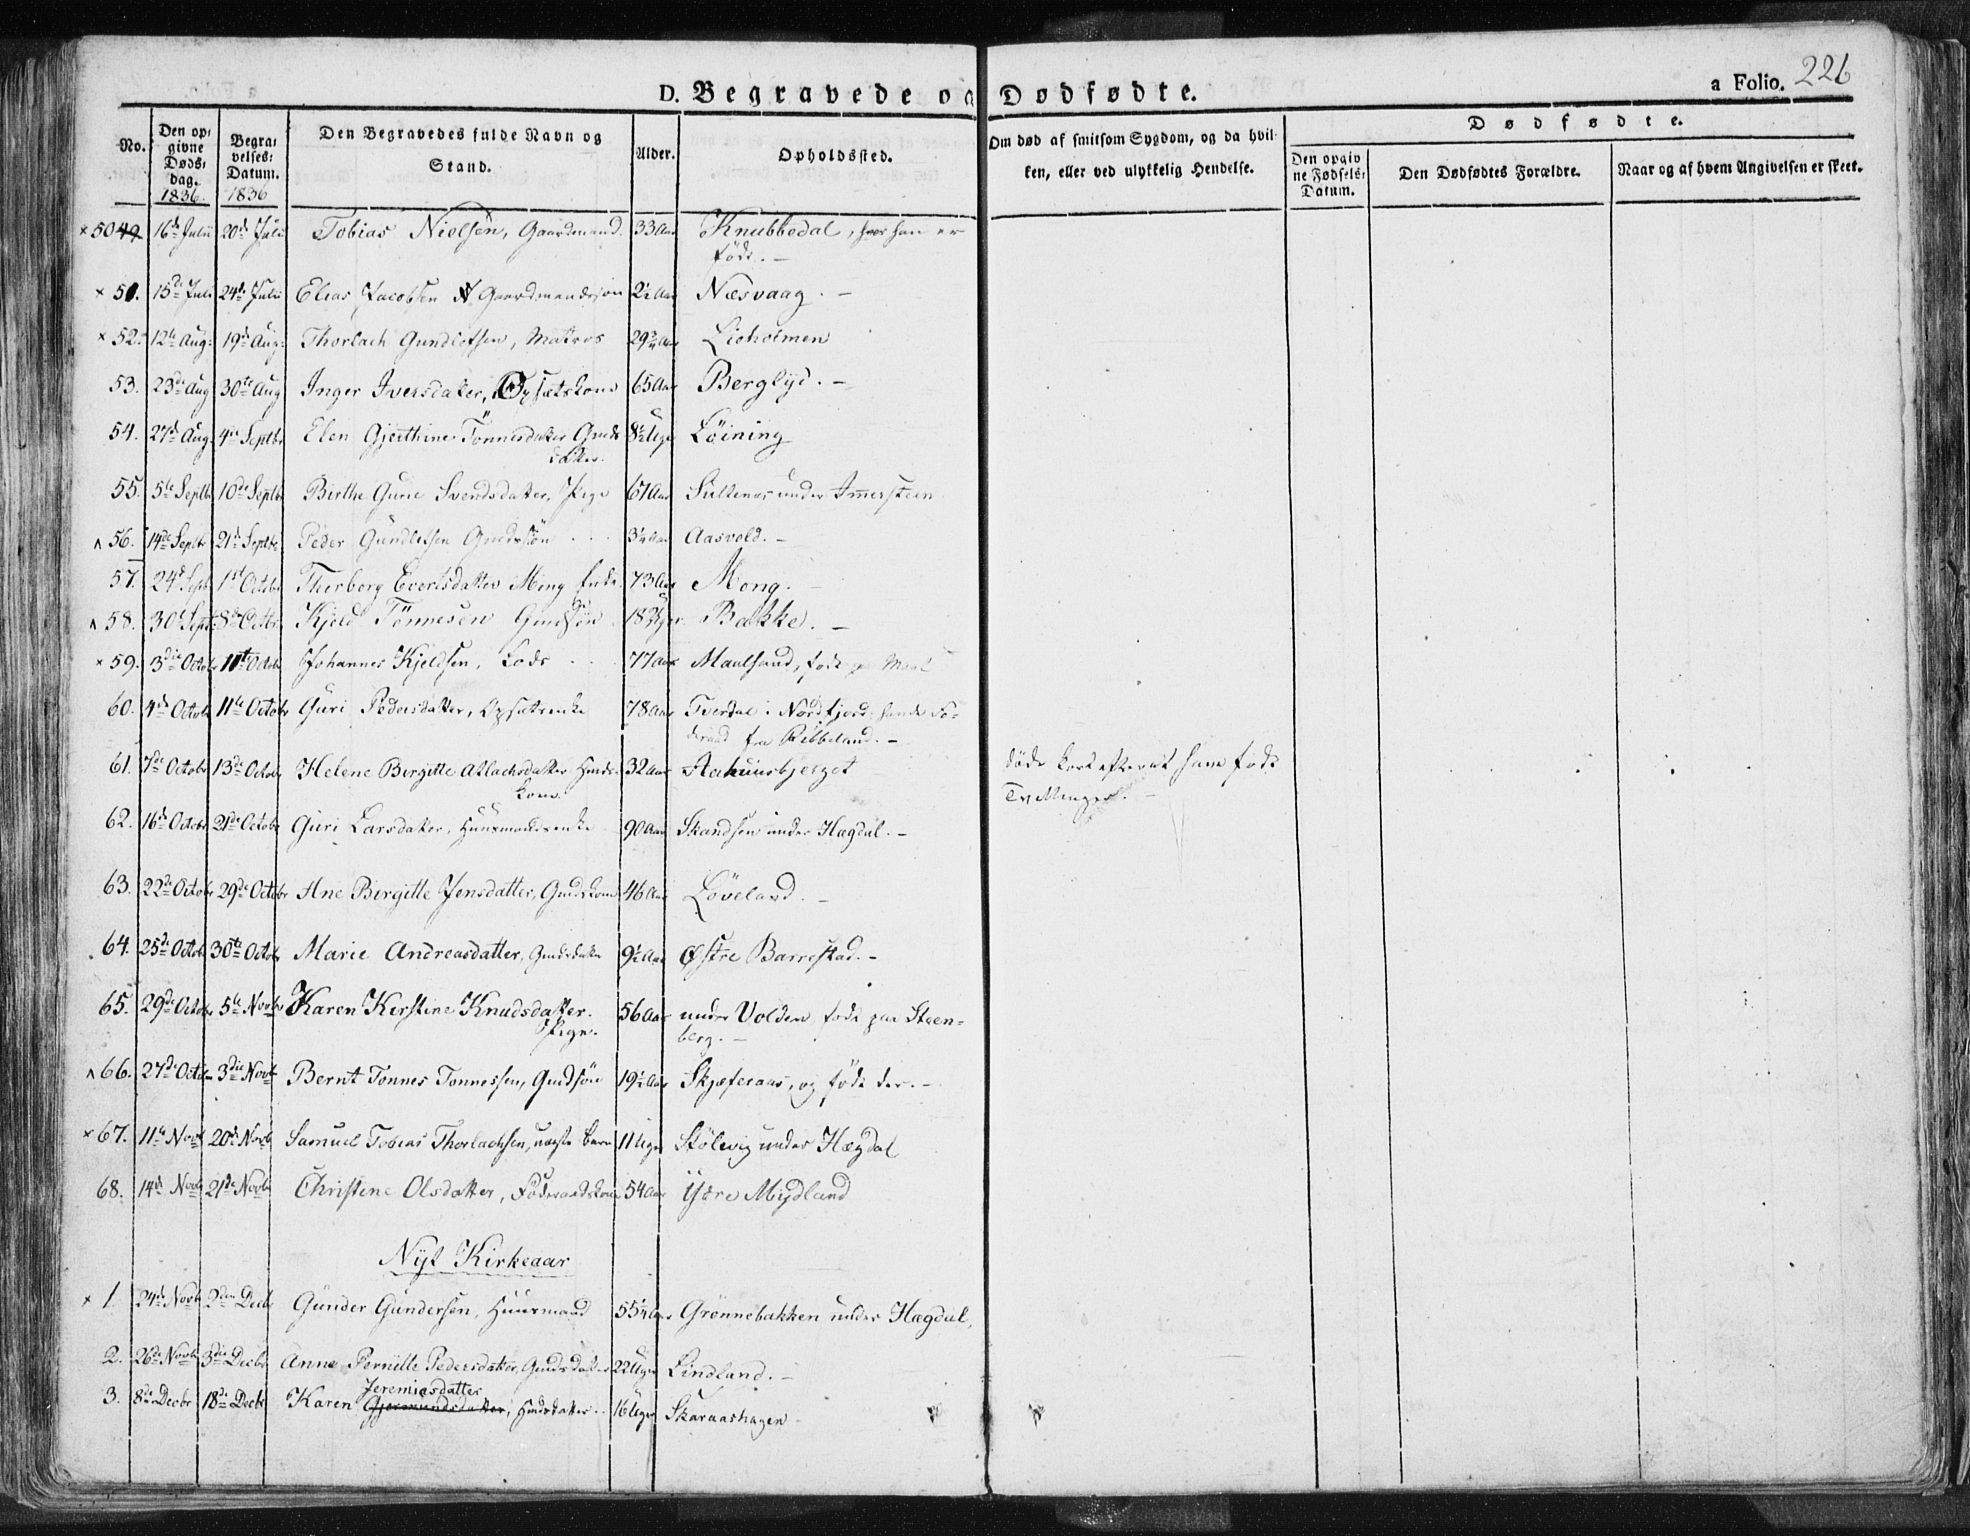 D. Begravede og Dødfødte.
a Folio. 226
No.
Den opgivne Dødsdag. 1836.
Begravelses: Datum. 1836
Den Begravedes fulde Navn og Stand.
Alder.
Opholdssted.
Om død af smitsom Sygdom, og da hvilken, eller ved ulykkelig Hendelse.
Dødfødte.
Den opgivne Fødsels: Datum.
Den Dødfødtes Forældre.
Naar og af hvem Angivelsen er skeet.
× 50 49 16de Julii 20de Julii Tobias Nielsen, Gaardmand. 33 Aar Knubbedal, hvor han er
født. –
× 51. 15de Juli 24de Julii Elias Jacobsen Gaardmandssøn 2½ Aar Næsvaag. –
× 52. 12te Aug: 19de Aug: Thorlach Gundlefsen, Matros 29¾ Aar Lieholmen
53. 23de Aug 30te Aug Inger Iversdatter, Opsætskone 65 Aar Berglyd. –
54. 27de Aug. 4de Septbr Elen Gjerthine Tönnesdatter Gmds
datter. 8½ Uge Löining
55. 5te Septbr 10de Septbr Birthe Gurie Svendsdatter, Pige 67 Aar Sultenes under Imersteen
^ 56. 14de Septbr 21de Septbr Peder Gundlefsen Gmdssön 3¼ Aar Aasvold. –
57. 24de Septb 1st Octobr Thorborg Evertsdatter Mong Enke 73 Aar Mong. –
^ 58. 30te Septb. 8de Octbr Kjeld Tönnesen Gmdssön 18 Uger Bakke. –
× 59. 3die Octob 11te Octobr Johannes Kjeldsen, Lods 77 Aar Maalsund, født paa Maal
60. 4de Octob 11te Octobr Guri Pedersdatter, Opsætsenke 78 Aar Tverdal i Nordfjord, havde Fø-
deraad fra Ribbeland. –
61. 7de Octobr 13de Octobr Helene Birgitte Atlachsdatter Hmds-
kone. 32 Aar Aahuusbjerget døde kort efterat have født
Tvillinger. –
62. 16de Octobr 21de Octobr Guri Larsdatter, Huusmandsenke 90 Aar Skandsen under Hægdal. –
63. 22de Octobr 29de Octobr Ane Birgitte Jensdatter, Gmdskone 46 Aar Löveland. –
64. 25de Octobr 30te Octobr Marie Andreasdatter, Gmdsdatter 9½ Aar Østre Barrestad. –
65. 29de Octobr 5te Novbr Karen Kirstine Knudsdatter.
Pige. 56 Aar under Volden, født paa Steen-
berg. –
^ 66. 27de Octobr 3die Novb Bernt Tonnes Tonnessen, Gmdsön 19½ Aar Skjæferaas, og född der. –
× 67. 11te Novb 20de Novb Samuel Tobias Thorlachsen, uægte Barn 11 Uger Stölevig under Hægdal
68. 14de Novb 21de Novb Christene Olsdatter, Föderaadskone 54 Aar Ystre Mydland
Nyt Kirkeaar
× 1 24de Novb 2den Decbr Gunder Gundersen, Huusmand 55¼ Aar Grønnebakken under Hægdal,
2. 26de Novb 3die Decbr Anne Pernille Pedersdatter, Gmdsdatter 22 Uger Lindland. –
Jeremiasdatter
3. 8de Decbr 18de Decbr Karen Gjermundsdatter, Hmdsdatter 16 Uger Skaraashagen –